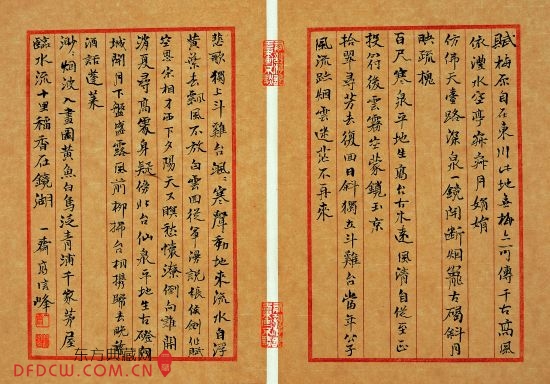 賦梅原自在東川此地玄梅亦可傳千古高風
依漕水空亭森森月娟娟
仿佛天臺路深泉一鏡開断烟籠古碣斜月
映疏槐
百尺寒泉平地生高台古木遠風清自從至正
投符後雲霧空蒙鏡玉京
拾翠尋芳去復回日斜獨立斗雞台當年公子
風流路烟雲迷茫不再來
悲歌獨上斗雞台颯颯寒聲動地來流水自浮
黄葉去飄風不放白雲回從軍漫説
空思宋相才西下夕陽天又暝愁懷潦倒向誰開
消夏尋高處身疑傍此台仙泉平地生古磴
城開月下盤盛露風前柳掃台相携歸去晚
酒話蓬萊
渺渺烟波入畫圖黄魚白鳥泛青浦千家茅屋
臨水流十里稻香在鏡湖 一齋
东方典藏网
DFDCW.COM.CN